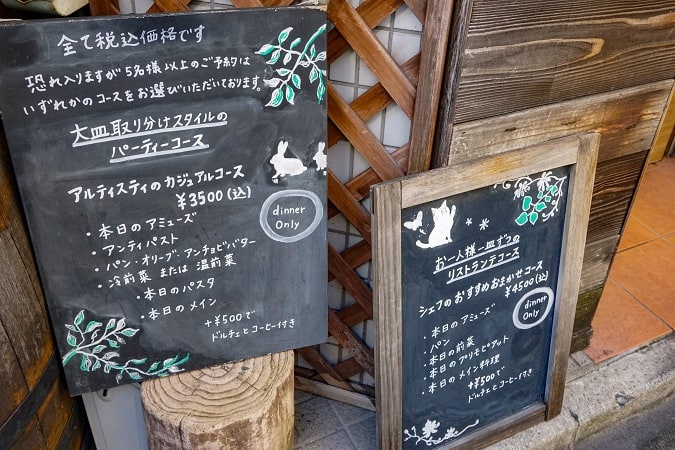 全て税込価格です
恐れ入りますが5名様以上のご予約は
いずれかのコースをお選びいただいております。
大皿取り分けスタイルの
パーティーコース
アルティスティのカジュアルコース
¥3500(込)
dinner
Only
・本日のアミューズ
・アンティパスト
・パン・オリーブ・アンチョビバター
・冷前菜 または 温前菜
・本日のパスタ
・本日のメイン
+¥500で
ドルチェとコーヒー付き
お一人様一皿ずつの
リストランテコース
シェフのおすすめおまかせコース
¥4500(込)
dinner
Only
・本日のアミューズ
・パン
・本日の前菜
・本日のプリモピアット
・本日のメイン料理
+¥500で
ドルチェとコーヒー付き